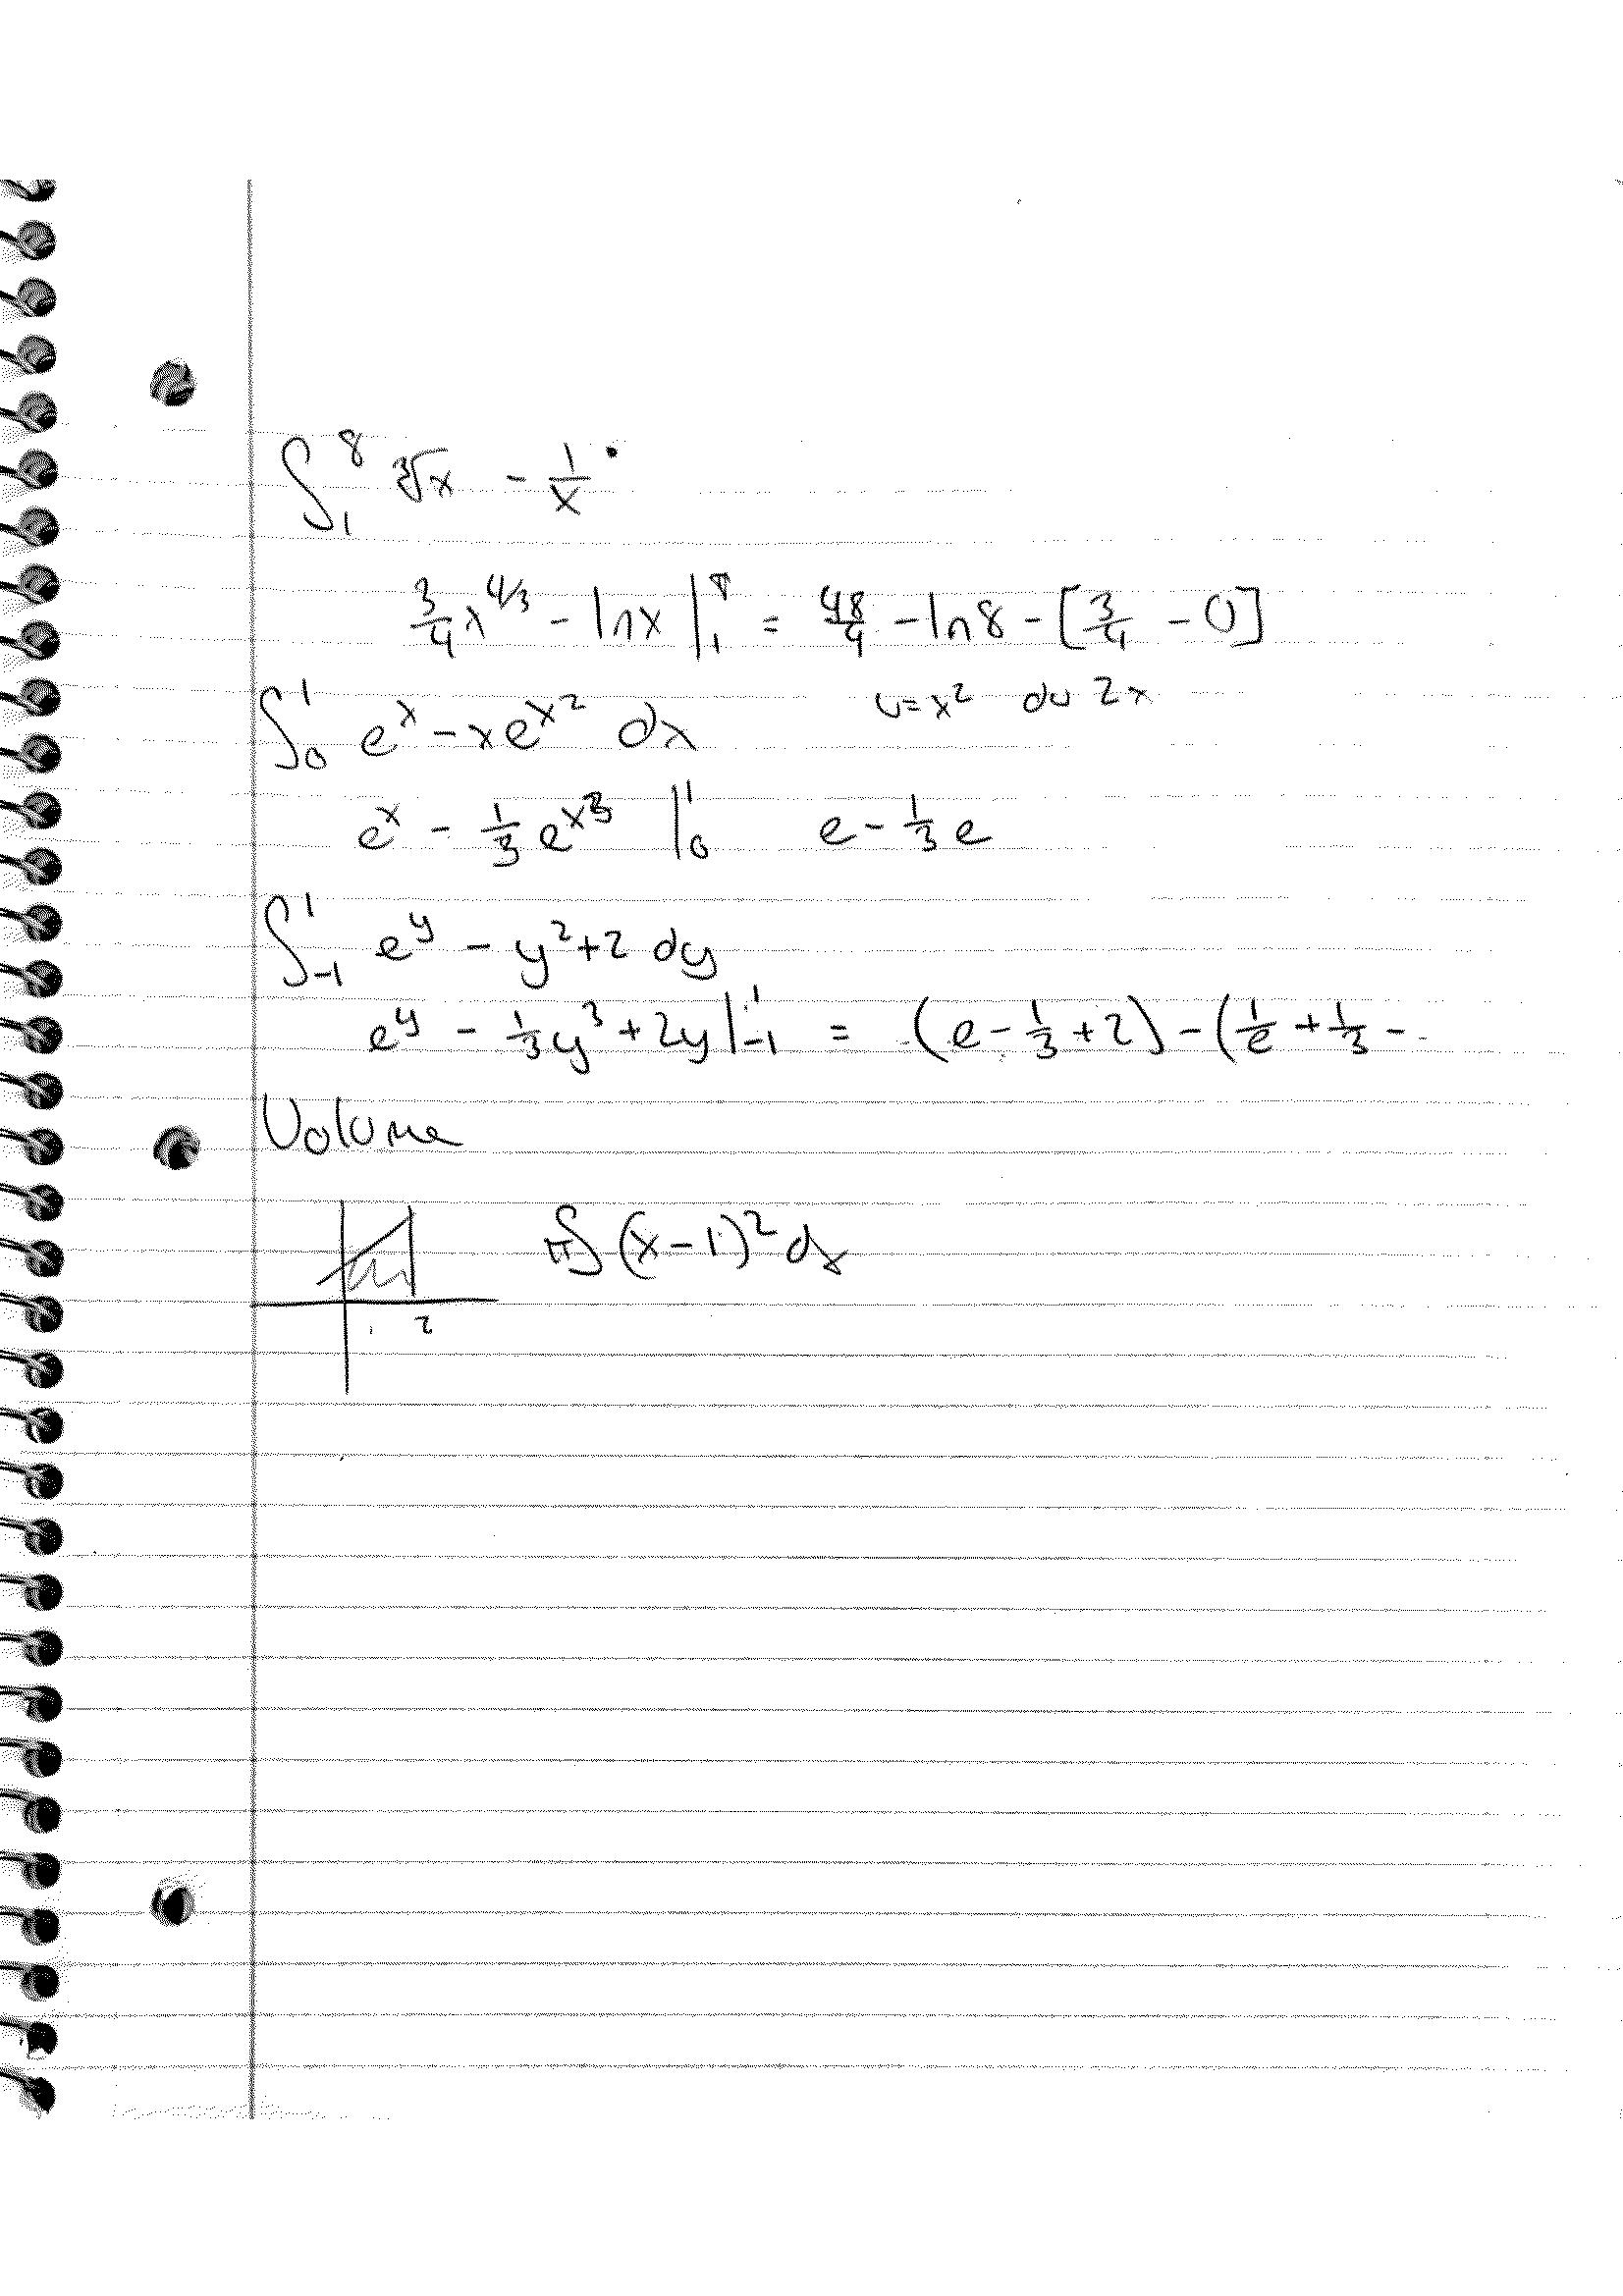 ∫₁⁸ ∛x - 1/x
3/4 x^(4/3) - ln x |₁⁸ = 48/4 - ln 8 - [3/4 - 0]
∫₀¹ eˣ - xe^(x²) dx u = x² du 2x
eˣ - 1/3 e^(x³) |₀¹ e - 1/3 e
∫₋₁¹ e^y - y² + 2 dy
e^y - 1/3 y³ + 2y |₋₁¹ = (e - 1/3 + 2) - (1/e + 1/3 -
Volume
π∫ (x - 1)² dx
1 2